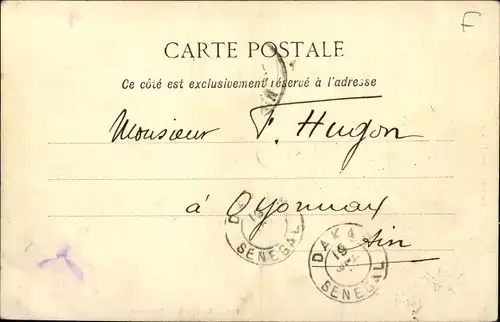 F
CARTE POSTALE
Ce côté est exclusivement réservé à l'adresse
Monsieur F. Hugon
à Oyonnax
Ain
DA
19
SENEGAL
DAKA
19
SENEGAL